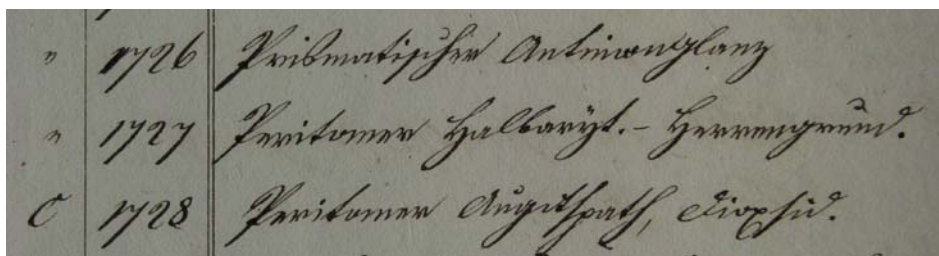 " 1726 Prismatischer Antimonglanz
" 1727 Peritomer Halbaryt. - Herrengrund.
C 1728 Peritomer Augitspath, Diopsid.